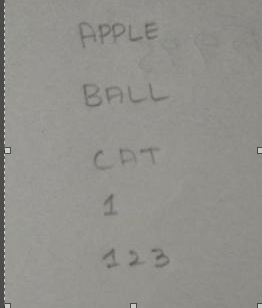 APPLE
BALL
CAT
1
123